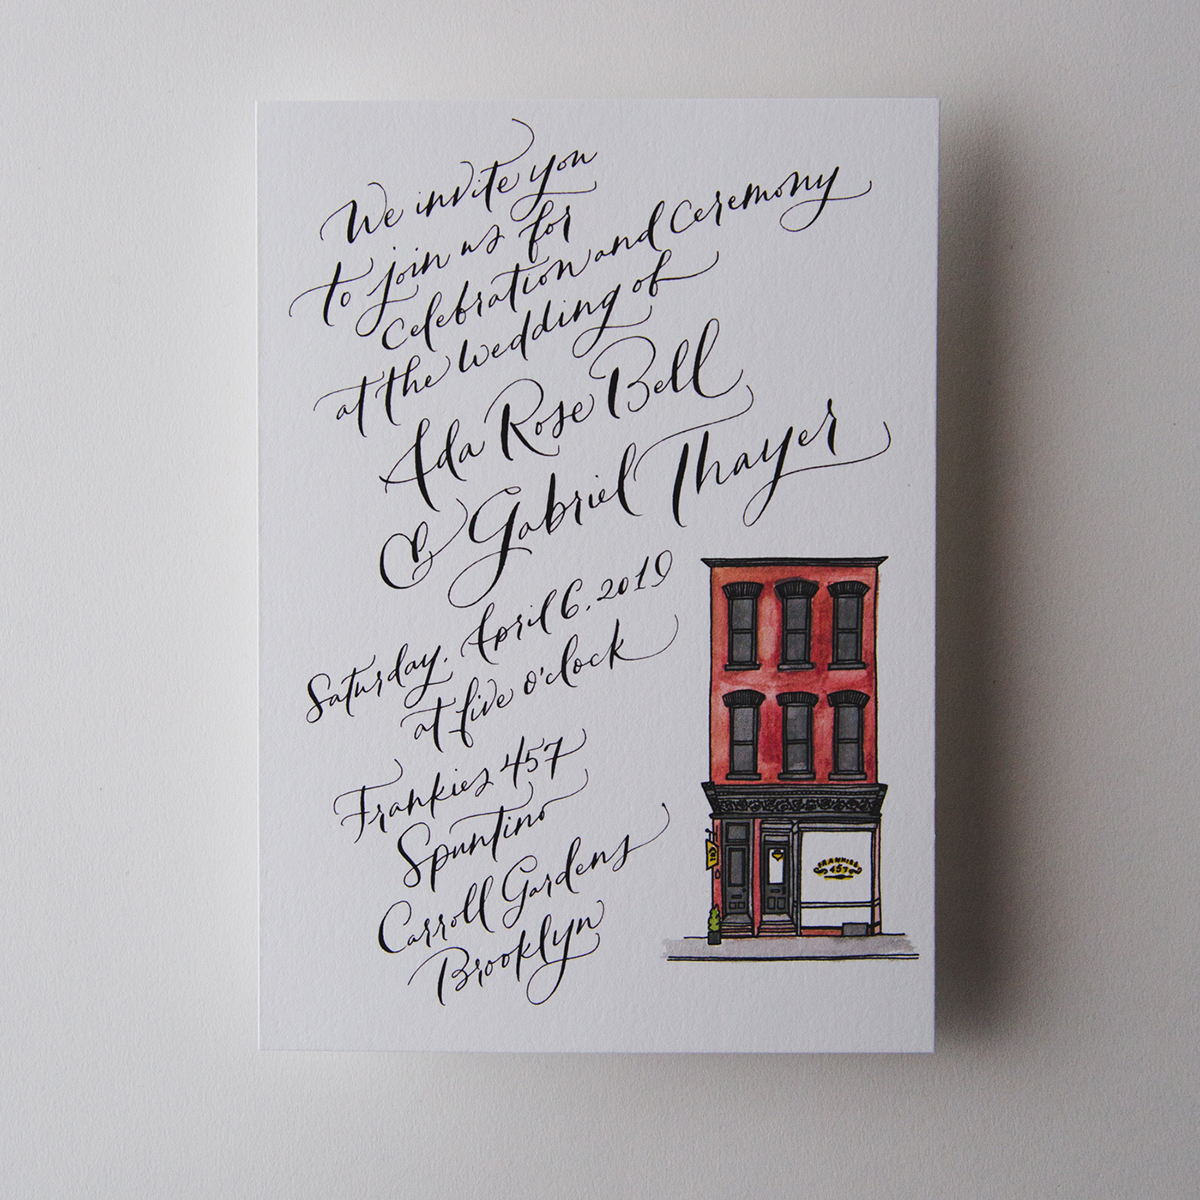 We invite you
to join us for
Celebration and Ceremony
at the wedding of
Ada Rose Bell
& Gabriel Thayer
Saturday, April 6, 2019
at five o'clock
Frankies 457
Spuntino
Carroll Gardens
Brooklyn
FRANKIES
457